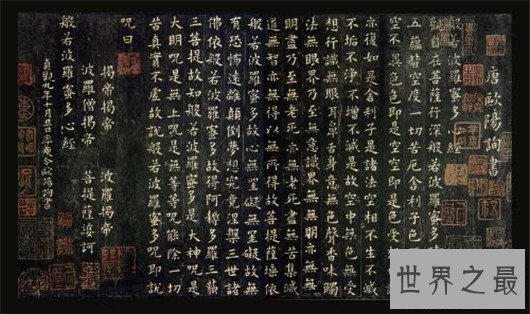 唐歐陽詢書
般若波羅蜜多心經
觀自在菩薩行深般若波羅蜜多時照見
五蘊皆空度一切苦厄舍利子色不異空
空不異色色即是空空即是色受想行識
亦復如是舍利子是諸法空相不生不滅
不垢不淨不增不減是故空中無色無受
想行識無眼耳鼻舌身意無色聲香味觸
法無眼界乃至無意識界無無明亦無無
明盡乃至無老死亦無老死盡無苦集滅
道無智亦無得以無所得故菩提薩埵依
般若波羅蜜多故心無罣礙無罣礙故無
有恐怖遠離顛倒夢想究竟涅槃三世諸
佛依般若波羅蜜多故得阿耨多羅三藐
三菩提故知般若波羅蜜多是大神呪是
大明呪是無上呪是無等等呪能除一切
苦真實不虛故說般若波羅蜜多呪即說
呪曰
揭帝揭帝 波羅揭帝
波羅僧揭帝 菩提薩婆訶
般若波羅蜜多心經
貞觀九年十月旦日率更令歐陽詢書
世界之最